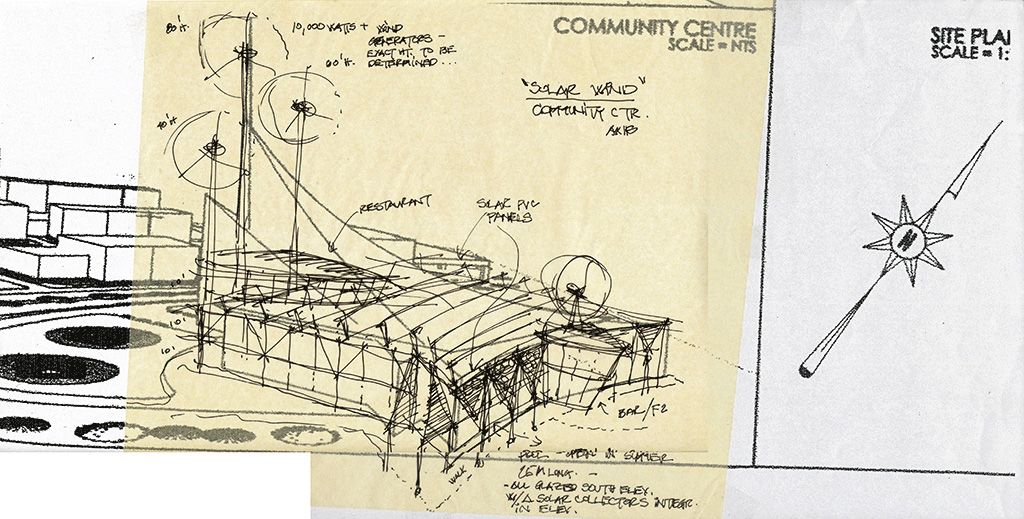 80 ft.
10,000 WATTS + WIND
GENERATORS -
EXACT HT. TO BE
DETERMINED...
60 ft.
40 ft
COMMUNITY CENTRE
SCALE = NTS
SITE PLA
SCALE = 1:
"SOLAR WIND"
COMMUNITY CTR.
RESTAURANT
SOLAR PVC
PANELS
N
10'
10'
10'
BAR/F2
WALK
POOL - OPEN IN SUMMER
25 M LONG. -
- ALL GLAZED SOUTH ELEV.
W/ Δ SOLAR COLLECTORS INTEGR.
IN ELEV.